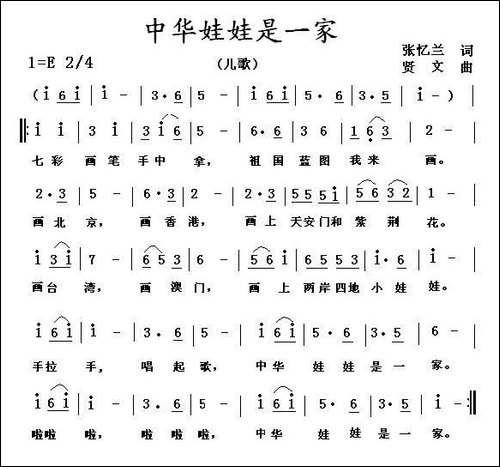 中华娃娃是一家
1=E 2/4
（儿歌）
张忆兰 词
贤文 曲
(i 6 i | i - | 3·6 | 5 - | i 6 i | 5·6 | 3·5 | i - )
‖: i i | 3 i | 3 i 6 | i - | 6·6 | 3 3 | 1 6 3 | 2 - |
七彩 画笔 手中 拿， 祖国 蓝图 我来 画。
2·3 | 5 - | 6·3 | 2 - | 2·3 | 5 5 5 1 | 5 6 3 2 | 1 - |
画北 京， 画香 港， 画上 天安门和 紫荆 花。
i 3 i | 7 - | 6 5 3 | 6 - | 5 6 i | 6 5 5 3 | i· 6 | i - |
画台 湾， 画澳 门， 画上 两岸四地 小娃 娃。
i 6 i | i - | 3·6 | 5 - | i 6 i | 5·6 | 3·5 | 6 - |
手拉 手， 唱起 歌， 中华 娃娃 是一 家。
i 6 i | i - | 3·6 | 5 - | i 6 i | 5·6 | 3·5 | i - :‖
啦啦 啦， 啦啦 啦， 中华 娃娃 是一 家。